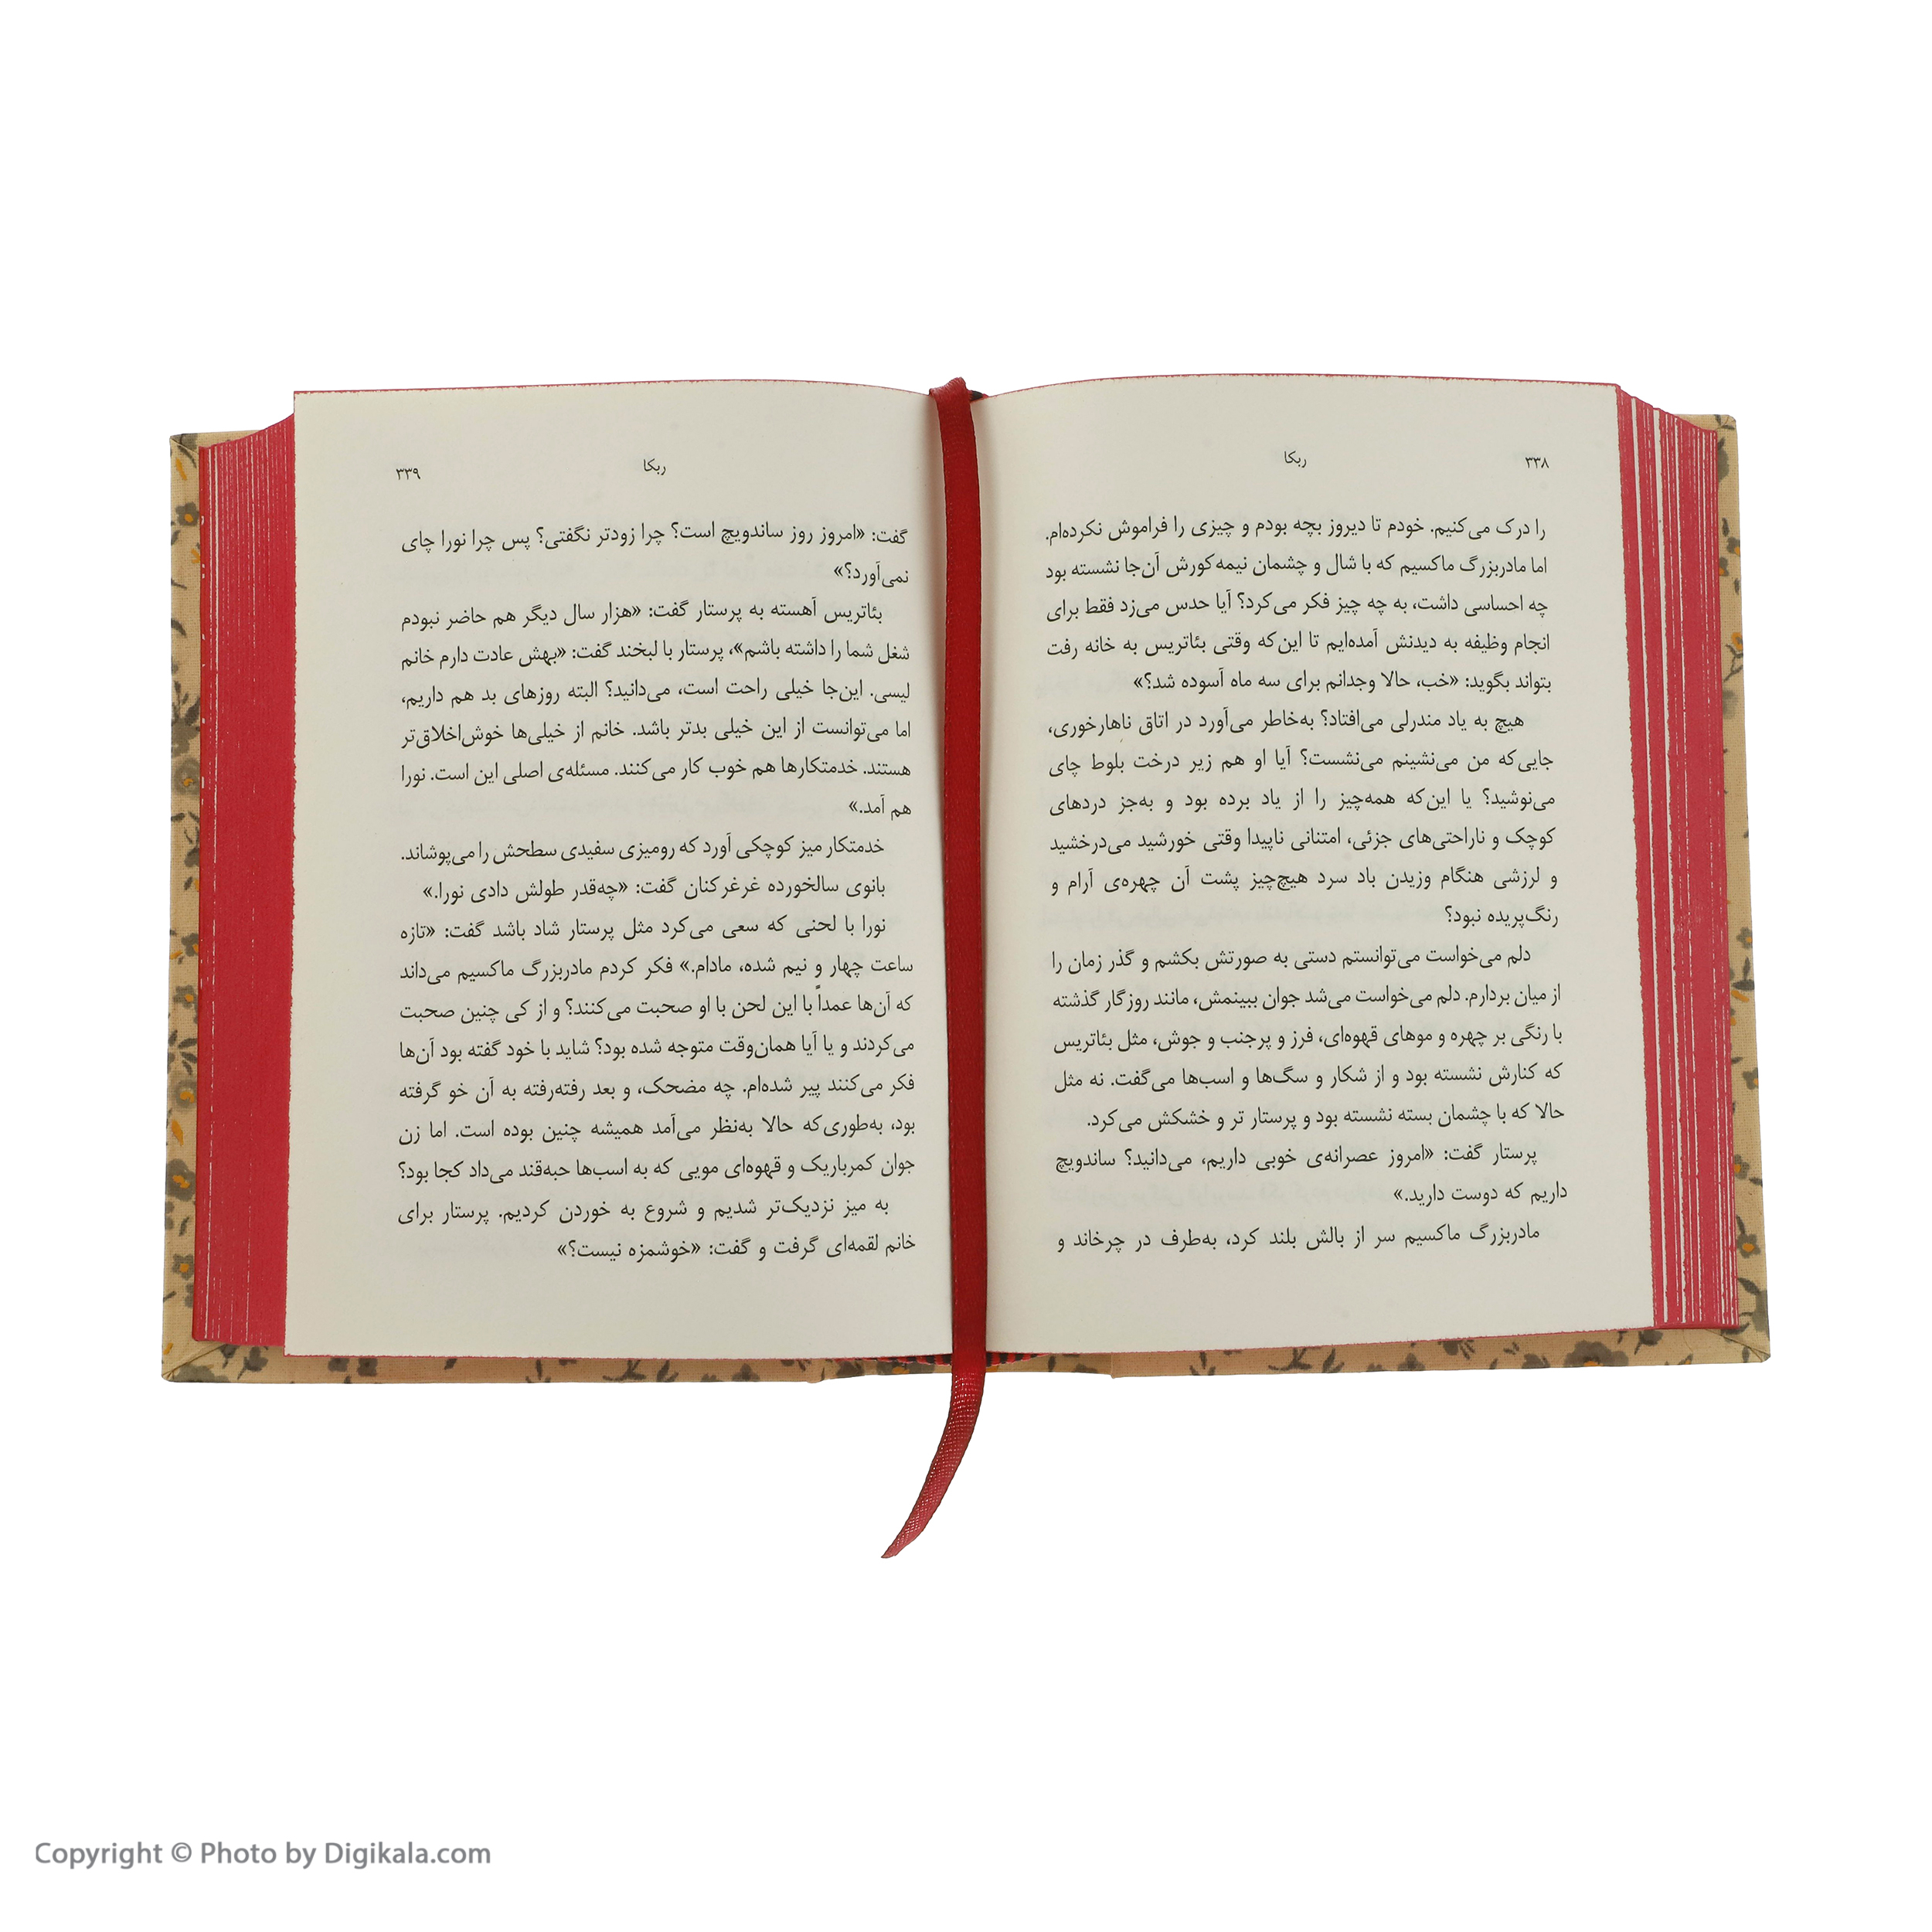 ۳۳۸
ربکا
را درک می‌کنیم. خودم تا دیروز بچه بودم و چیزی را فراموش نکرده‌ام.
اما مادربزرگ ماکسیم که با شال و چشمان نیمه‌کورش آن‌جا نشسته بود
چه احساسی داشت، به چه چیز فکر می‌کرد؟ آیا حدس می‌زد فقط برای
انجام وظیفه به دیدنش آمده‌ایم تا این‌که وقتی بئاتریس به خانه رفت
بتواند بگوید: «خب، حالا وجدانم برای سه ماه آسوده شد؟»
هیچ به یاد مندرلی می‌افتاد؟ به‌خاطر می‌آورد در اتاق ناهارخوری،
جایی‌که من می‌نشینم می‌نشست؟ آیا او هم زیر درخت بلوط چای
می‌نوشید؟ یا این‌که همه‌چیز را از یاد برده بود و به‌جز دردهای
کوچک و ناراحتی‌های جزئی، امتنانی ناپیدا وقتی خورشید می‌درخشید
و لرزشی هنگام وزیدن باد سرد هیچ‌چیز پشت آن چهره‌ی آرام و
رنگ‌پریده نبود؟
دلم می‌خواست می‌توانستم دستی به صورتش بکشم و گذر زمان را
از میان بردارم. دلم می‌خواست می‌شد جوان ببینمش، مانند روزگار گذشته
با رنگی بر چهره و موهای قهوه‌ای، فرز و پرجنب و جوش، مثل بئاتریس
که کنارش نشسته بود و از شکار و سگ‌ها و اسب‌ها می‌گفت. نه مثل
حالا که با چشمان بسته نشسته بود و پرستار تر و خشکش می‌کرد.
پرستار گفت: «امروز عصرانه‌ی خوبی داریم، می‌دانید؟ ساندویچ
داریم که دوست دارید.»
مادربزرگ ماکسیم سر از بالش بلند کرد، به‌طرف در چرخاند و
ربکا
۳۳۹
گفت: «امروز روز ساندویچ است؟ چرا زودتر نگفتی؟ پس چرا نورا چای
نمی‌آورد؟»
بئاتریس آهسته به پرستار گفت: «هزار سال دیگر هم حاضر نبودم
شغل شما را داشته باشم»، پرستار با لبخند گفت: «بهش عادت دارم خانم
لیسی. این‌جا خیلی راحت است، می‌دانید؟ البته روزهای بد هم داریم،
اما می‌توانست از این خیلی بدتر باشد. خانم از خیلی‌ها خوش‌اخلاق‌تر
هستند. خدمتکارها هم خوب کار می‌کنند. مسئله‌ی اصلی این است. نورا
هم آمد.»
خدمتکار میز کوچکی آورد که رومیزی سفیدی سطحش را می‌پوشاند.
بانوی سالخورده غرغرکنان گفت: «چه‌قدر طولش دادی نورا.»
نورا با لحنی که سعی می‌کرد مثل پرستار شاد باشد گفت: «تازه
ساعت چهار و نیم شده، مادام.» فکر کردم مادربزرگ ماکسیم می‌داند
که آن‌ها عمداً با این لحن با او صحبت می‌کنند؟ و از کی چنین صحبت
می‌کردند و یا آیا همان‌وقت متوجه شده بود؟ شاید با خود گفته بود آن‌ها
فکر می‌کنند پیر شده‌ام. چه مضحک، و بعد رفته‌رفته به آن خو گرفته
بود، به‌طوری‌که حالا به‌نظر می‌آمد همیشه چنین بوده است. اما زن
جوان کمرباریک و قهوه‌ای مویی که به اسب‌ها حبه‌قند می‌داد کجا بود؟
به میز نزدیک‌تر شدیم و شروع به خوردن کردیم. پرستار برای
خانم لقمه‌ای گرفت و گفت: «خوشمزه نیست؟»
Copyright © Photo by Digikala.com